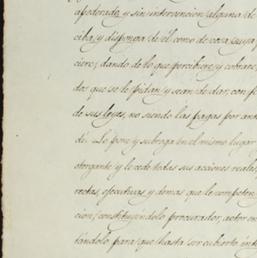 apoderado, y sin intervencion alguna de
ciba, y disponga de él como de cosa suya p
ciere; dando de lo que percibiere y cobrare,
dos que se le pidan y sean de dar, con f
de sus leyes, no siendo las pagas por ant
di. Le pone y subroga en el mismo lugar
otorgante y le cede todas sus acciones reales,
rectas, ejecutivas y demas que le competen
cion, constituyendolo procurador, actor en
tandolo para que hasta ser cubierto inte